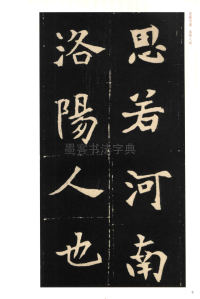 思若河南
洛陽人也
墨客书法字典